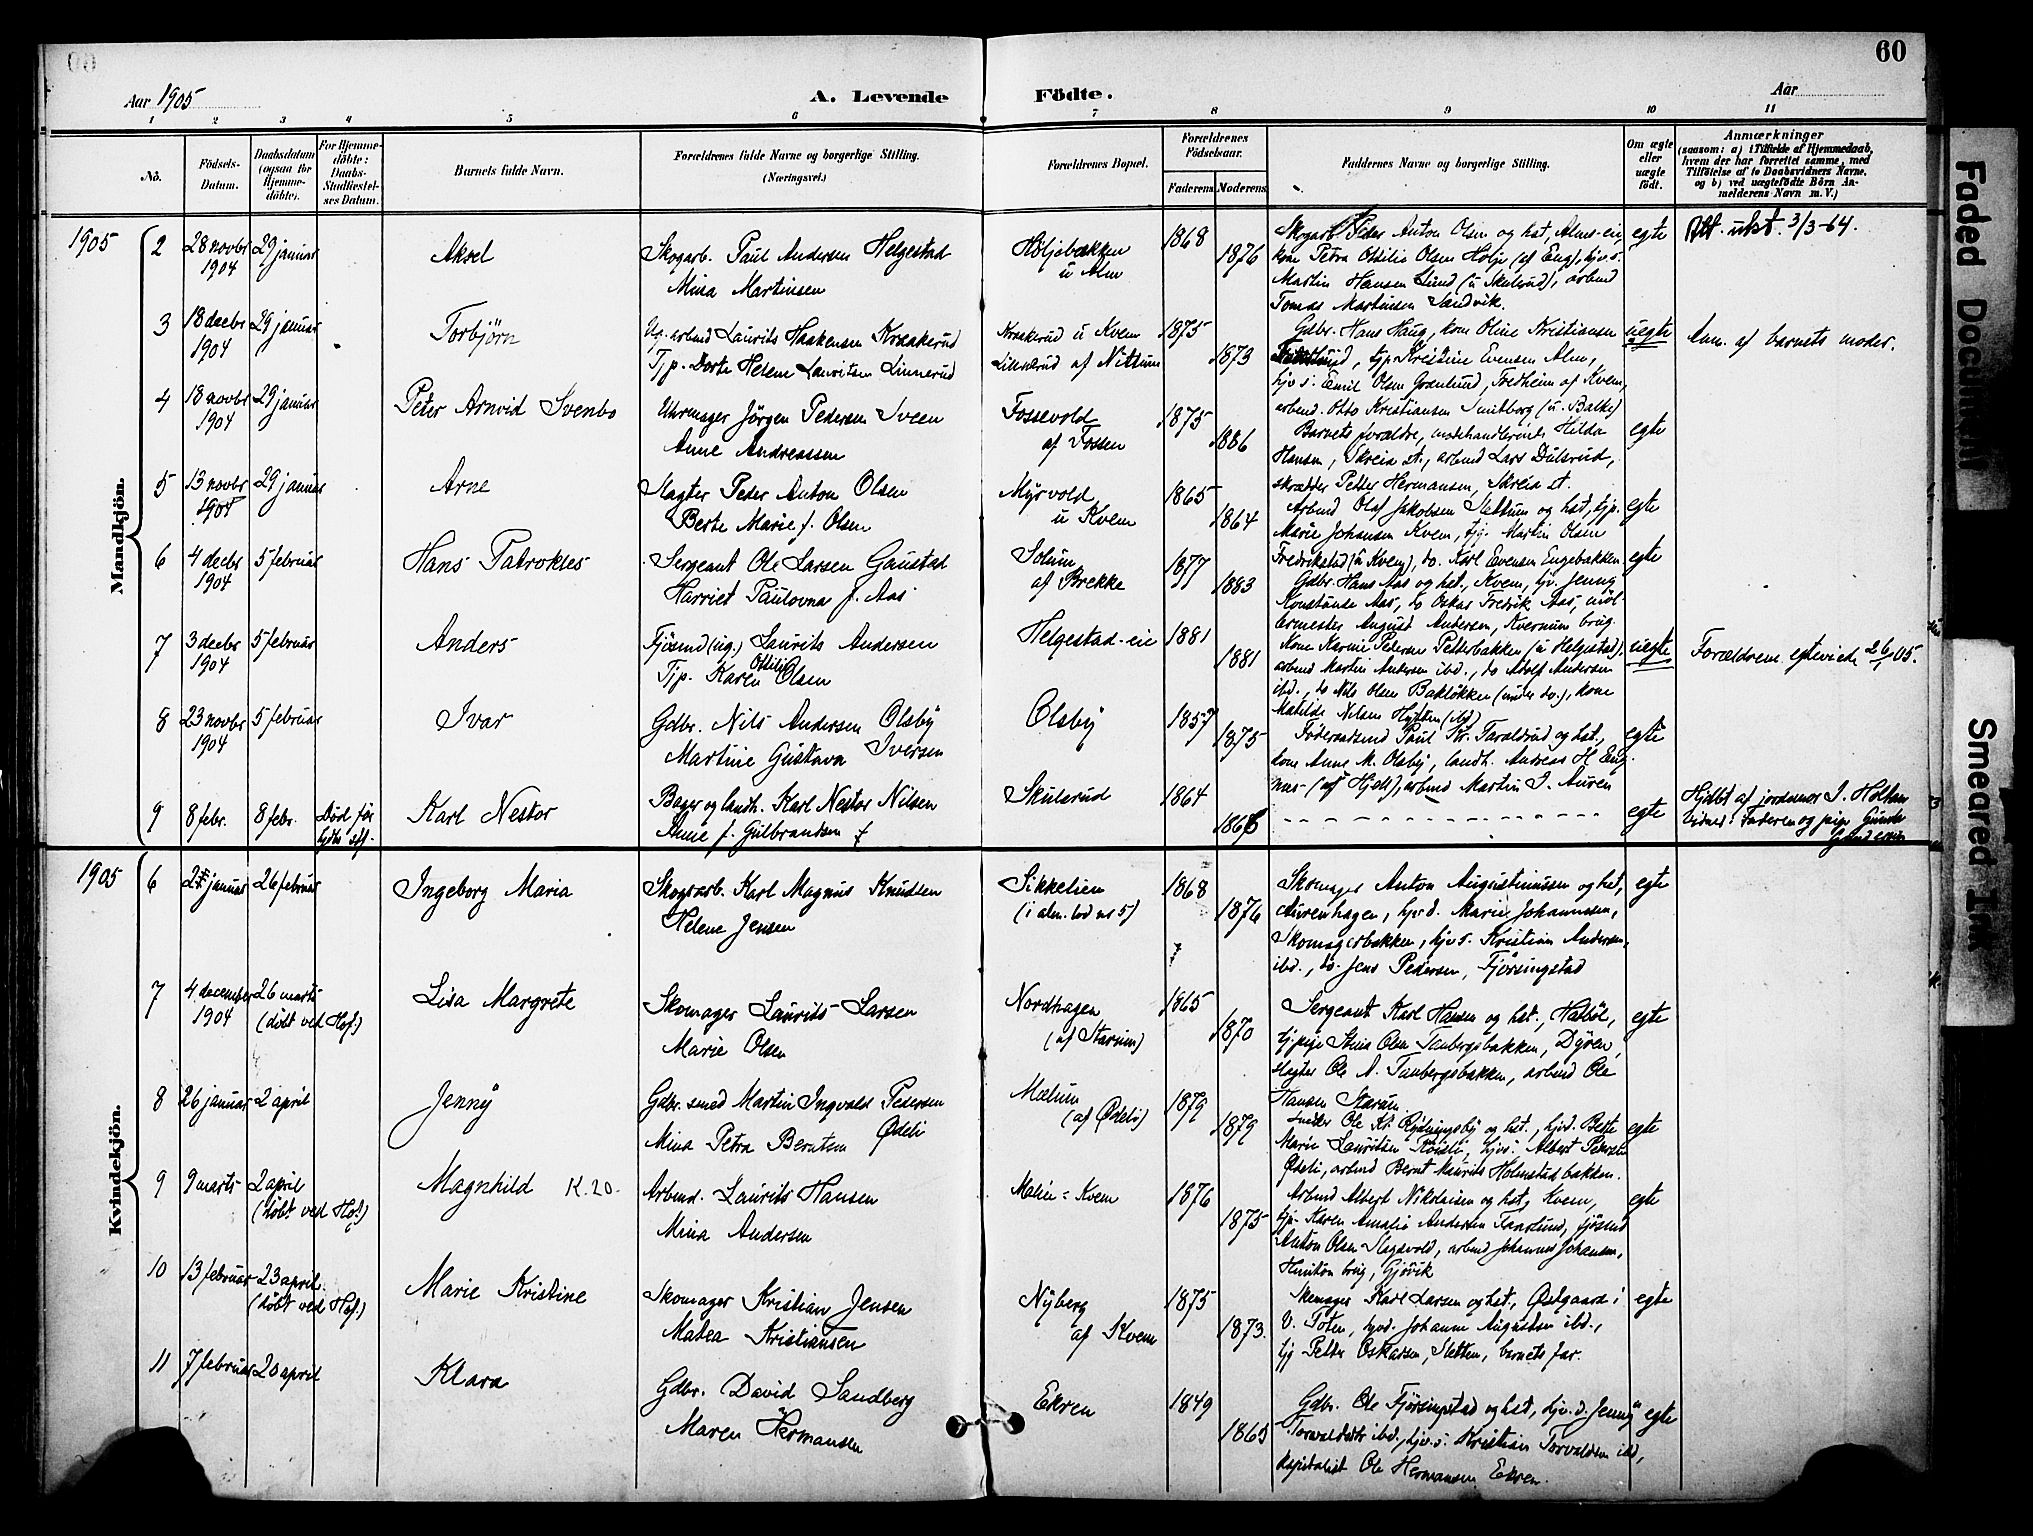 60
Aar 1905
A. Levende Födte.
Aar
1 2 3 4 5 6 7 8 9 10 11
No.
Födsels-Datum.
Daabsdatum (ogsaa for Hjemme-döbte).
For Hjemme-döbte: Daabs-Stadfæstel-ses Datum.
Barnets fulde Navn.
Forældrenes fulde Navne og borgerlige Stilling. (Næringsvei.)
Forældrenes Bopæl.
Forældrenes Födselsaar.
Faderens Moderens
Faddernes Navne og borgerlige Stilling.
Om ægte eller uægte födt.
Anmærkninger
(saasom: a) i Tilfælde af Hjemmedaab, hvem der har forrettet samme, med Tilföielse af to Daabsvidners Navne, og b) ved uægtefödte Börn An-melderens Navn m. V.)
Mandkjön.
1905 2 28 novbr 1904 29 januar Aksel
Skogarb. Paul Andersen Helgestad
Mina Martinsen
Höljebakken u Alm
1868 1876
Skogarb Peder Anton Olsen og hst, Alms-eie,
kone Petra Othilie Olsen Holje (af Eng), hjv. s.
Martin Hansen Lund (u Skulsrud), arbmd
Tomas Martinsen Sandvik.
egte
Att. utst. 3/3-64.
3 18 decbr 1904 29 januar Torbjörn
arbmd Laurits Haakensen Kraakerud
Tjp. Dorte Helene Lauritsen Linnerud
Kraakerud u Kvem
Linnerud af Nittum
1875 1873
Gdbr. Hans Haug, kone Oline Kristiansen
tjp. Kristine Evensen Alm,
hjv s. Emil Olsen Grønlund, Fredheim af Kvem,
arbmd. Otto Kristiansen Smitborg (u. Balke)
uegte
Anm. af barnets moder.
4 18 novbr 1904 29 januar Peter Arnvid Svenbo
Uhrmager Jörgen Pedersen Sveen
Anne Andreassen
Fossevold af Fossen
1875 1886
Barnets forældre, modehandlerinde Hilda
Hansen, Skreia st., arbmd Lars Dulsrud,
skrædder Petter Hermansen, Skreia st.
egte
5 13 novbr 1904 29 januar Arne
Slagter Peder Anton Olsen
Berte Marie f. Olsen
Myrvold u Kvem
1865 1864
Arbmd Olaf Jakobsen Slettum og hst, tjp.
Marie Johansen Kvem, tjg. Martin Olsen
Fredrikstad (u Kvem), do. Karl Evensen Engebakken
egte
6 4 decbr 1904 5 februar Hans Patrokles
Sergeant Ole Larsen Gaustad
Harriet Paulovna f. Aas
Solum af Brekke
1877 1883
Gdbr. Hans Aas og hst, Kvem, hjv. Jenny
Konstanse Aas, do Oskar Fredrik Aas, möl-
lermester August Andersen, Kvernum brug.
egte
7 3 decbr 1904 5 februar Anders
Fjösmd (ug.) Laurits Andersen
Tjp. Karen Ottilie Olsen
Helgestad-eie
1881 1881
Kone Karine Pedersen Petterbakken (u Helgestad),
arbmd Martin Andersen ibd., do Adolf Andersen
ibd., do Nils Olsen Bakløkken (under do.), kone
Matilde Nilsen Hytten (ibd)
uegte
Forældrene egteviede 26 05.
8 23 novbr 1904 5 februar Ivar
Gdbr. Nils Andersen Olsby
Martine Gustava Iversen
Olsby
1857 1875
Föderaadsmd Paul Kr. Taraldrud og hst,
kone Anne M. Olsby, landh. Andreas H. Eng
(af Hjell), arbmd Martin J. Auren
egte
9 8 febr. 8 febr. Död før Karl Nestor
Bager og landh. Karl Nestor Nilsen
Anne f. Gulbrandsen
Skulsrud
1864 1866
egte
Hjdbt af jordemor J. Holtan
Vidner: Faderen og pige
Kvindekjön.
1905 6 januar 26 februar Ingeborg Maria
Skogsarb. Karl Magnus Knudsen
Helene Jensen
Sikkelien (i alm. lod nr 5)
1868 1876
Skomager Anton Augustinussen og hst,
Aurenhagen, hjv d. Marie Johannssen,
Skomagerbakken, hjv s. Kristian Andersen,
ibd., do. Jens Pedersen, Fjørsingstad
egte
7 4 december 1904 26 marts (döbt ved Hof.) Lisa Margrete
Skomager Laurits Larsen
Marie Olsen
Nordhagen (af Starum)
1865 1870
Sergeant Karl Hansen og hst., Hatböl,
tj pige Stina Olsen Taubergsbakken, Dyren,
slagter Ole A. Taubergsbakken, arbmd Ole
Hansen Starum
egte
8 26 januar 2 april Jenny
Gdbr. smed Martin Ingvald Pedersen Ødeli
Mina Petra Berntsen
Mælum (af Ødeli)
1879 1879
Snider Ole Kr. Rydningsby og hst., hjvd. Berte
Marie Lauritsen Röisli, hjv s. Albert Pedersen
Ødeli, arbmd Bernt Maurits Holmstadbakken.
egte
9 9 marts 2 april (döbt ved Hof.) Magnhild K. 20.
Arbmd. Laurits Hansen
Mina Andersen
Kvem
1876 1875
Arbmd Albert Nikolaisen og hst, Kvem,
tjp. Karen Amalie Andersen Fauslund, fjösmd
Anton Olsen Slagsvold, arbmd Johannes Johansen,
Hunton brug, Gjövik
egte
10 13 februar 23 april (döbt ved Hof.) Marie Kristine
Skomager Kristian Jensen
Matea Kristiansen
Nyberg af Kvem
1875 1873.
Skomager Karl Larsen og hst., Østgaard i
V. Toten, hjvd. Johanne Augustsen ibd.,
tjg Petter Oskarsen, Sletten, barnets far.
egte
11 7 februar 20 april Klara
Gdbr. David Sandberg
Maren Hermansen
Ekren
1849 1865
Gdbr. Ole Fjørsingstad og hst, hjv. d. Jenny
Torvaldsdtr ibd., hjv. s. Kristian Torvaldsen ibd,
kapitalist Ole Hermansen Ekren.
egte
Faded Document
Smeared Ink